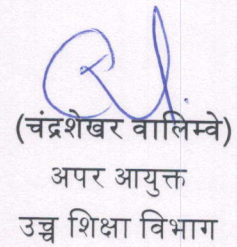 (चंद्रशेखर वालिम्बे)
अपर आयुक्त
उच्च शिक्षा विभाग